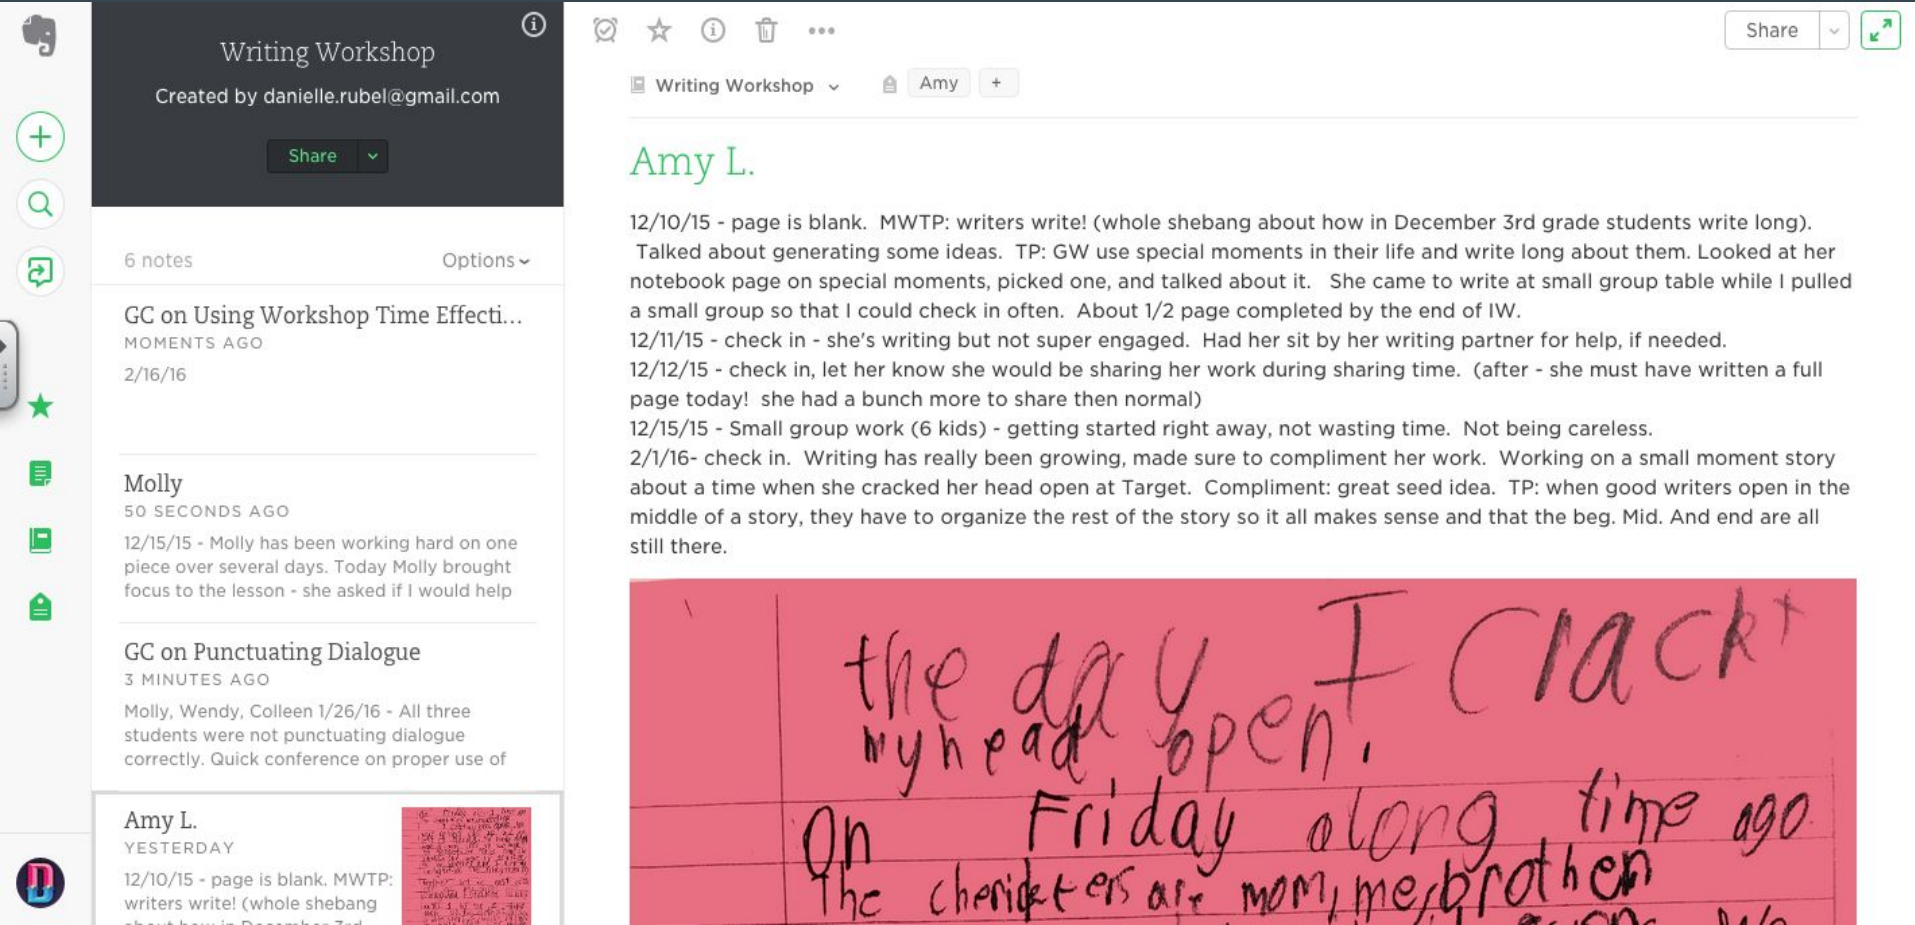 Writing Workshop
Created by danielle.rubel@gmail.com
Share
6 notes
Options
GC on Using Workshop Time Effecti...
MOMENTS AGO
2/16/16
Molly
50 SECONDS AGO
12/15/15 - Molly has been working hard on one
piece over several days. Today Molly brought
focus to the lesson - she asked if I would help
GC on Punctuating Dialogue
3 MINUTES AGO
Molly, Wendy, Colleen 1/26/16 - All three
students were not punctuating dialogue
correctly. Quick conference on proper use of
Amy L.
YESTERDAY
12/10/15 - page is blank. MWTP:
writers write! (whole shebang
about how in December 3rd
Share
Writing Workshop
Amy
+
Amy L.
12/10/15 - page is blank.  MWTP: writers write! (whole shebang about how in December 3rd grade students write long).
Talked about generating some ideas.  TP: GW use special moments in their life and write long about them. Looked at her
notebook page on special moments, picked one, and talked about it.   She came to write at small group table while I pulled
a small group so that I could check in often.  About 1/2 page completed by the end of IW.
12/11/15 - check in - she's writing but not super engaged.  Had her sit by her writing partner for help, if needed.
12/12/15 - check in, let her know she would be sharing her work during sharing time.  (after - she must have written a full
page today!  she had a bunch more to share then normal)
12/15/15 - Small group work (6 kids) - getting started right away, not wasting time.  Not being careless.
2/1/16- check in.  Writing has really been growing, made sure to compliment her work.  Working on a small moment story
about a time when she cracked her head open at Target.  Compliment: great seed idea.  TP: when good writers open in the
middle of a story, they have to organize the rest of the story so it all makes sense and that the beg. Mid. And end are all
still there.
the day I Crackt
my head open.
On Friday along time ago
The are mom, me, brother
We